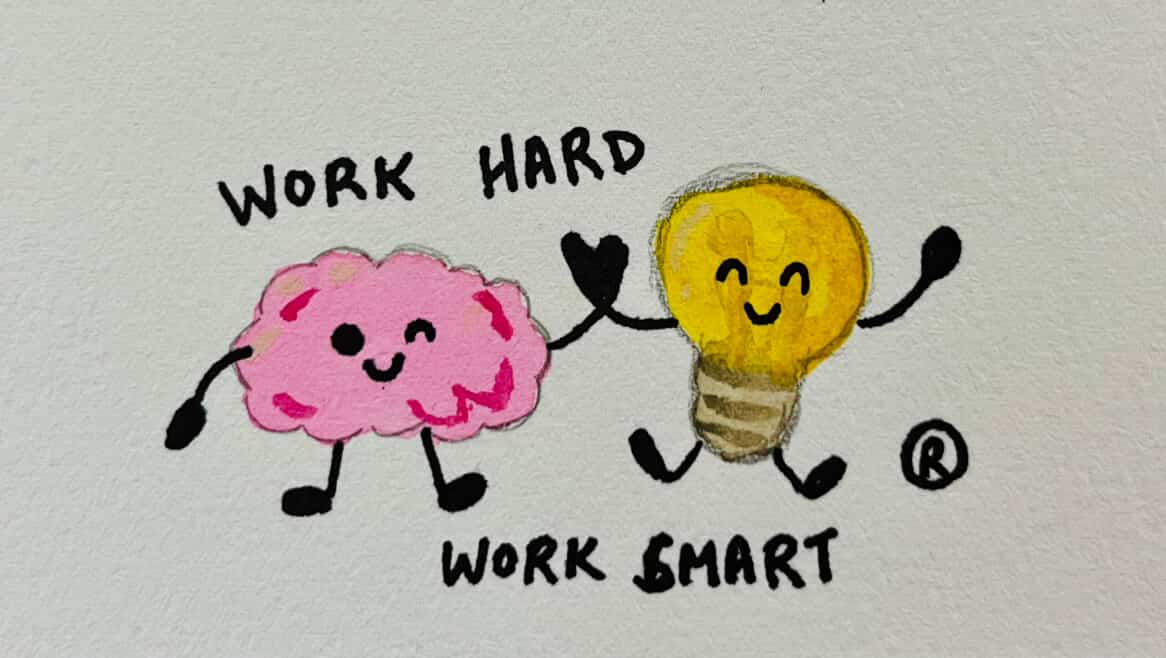 WORK HARD
®
WORK SMART